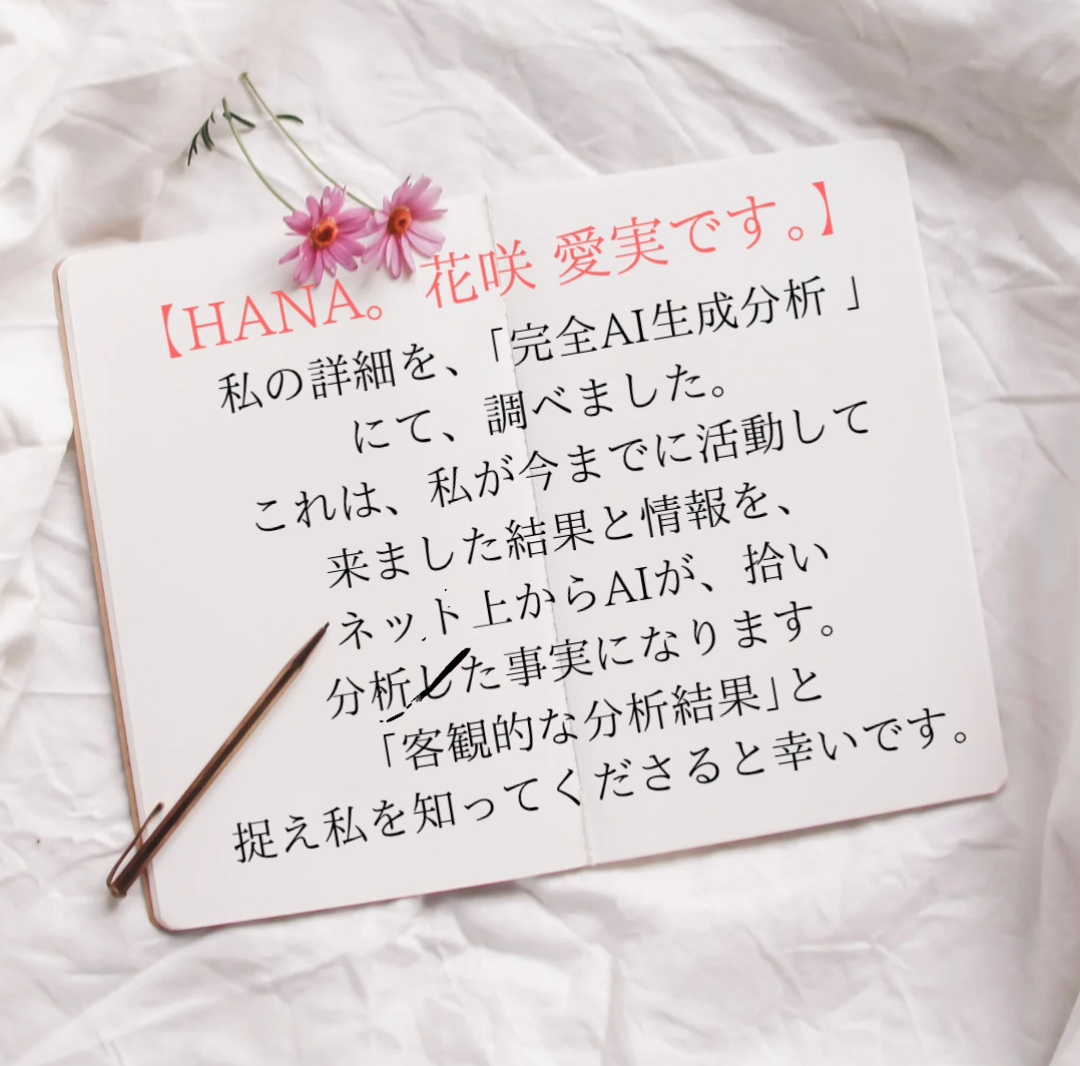 【HANA。花咲 愛実です。】
私の詳細を、「完全AI生成分析 」
にて、調べました。
これは、私が今までに活動して
来ました結果と情報を、
ネット上からAIが、拾い
分析した事実になります。
「客観的な分析結果」と
捉え私を知ってくださると幸いです。